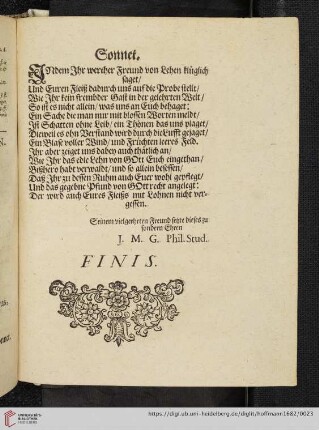 Sonnet.
INdem Ihr werther Freund von Lehen klüglich
saget/
Und Euren Fleiß dadurch uns auf die Probe stellt/
Wie Ihr kein frembder Gast in der gelehrten Welt/
So ist es nicht allein/ was uns an Euch behaget;
Ein Sache die man nur mit blossen Worten meldt/
Ist Schatten ohne Leib/ ein Thönen das uns plaget/
Dieweil es ohn Verstand wird durch die Lufft gejaget/
Ein Blase voller Wind/ und Früchten leeres Feld.
Ihr aber zeiget uns dabey auch thätlich an/
Wie Ihr das edle Lehn von GOtt Euch eingethan/
Bißhero habt verwaldt/ und so allein besessen/
Daß Ihr zu dessen Ruhm auch Euer wohl gepflegt/
Und das gegebne Pfund von GOtt recht angelegt:
Der wird auch Eures Fleißs mit Lohnen nicht ver-
gessen.
Seinem vielgeehrten Freund setzte dieses zu
sondern Ehren
J. M. G. Phil. Stud.
FINIS.
UNIVERSITÄTS-
BIBLIOTHEK
HEIDELBERG
https://digi.ub.uni-heidelberg.de/diglit/hoffmann1682/0023